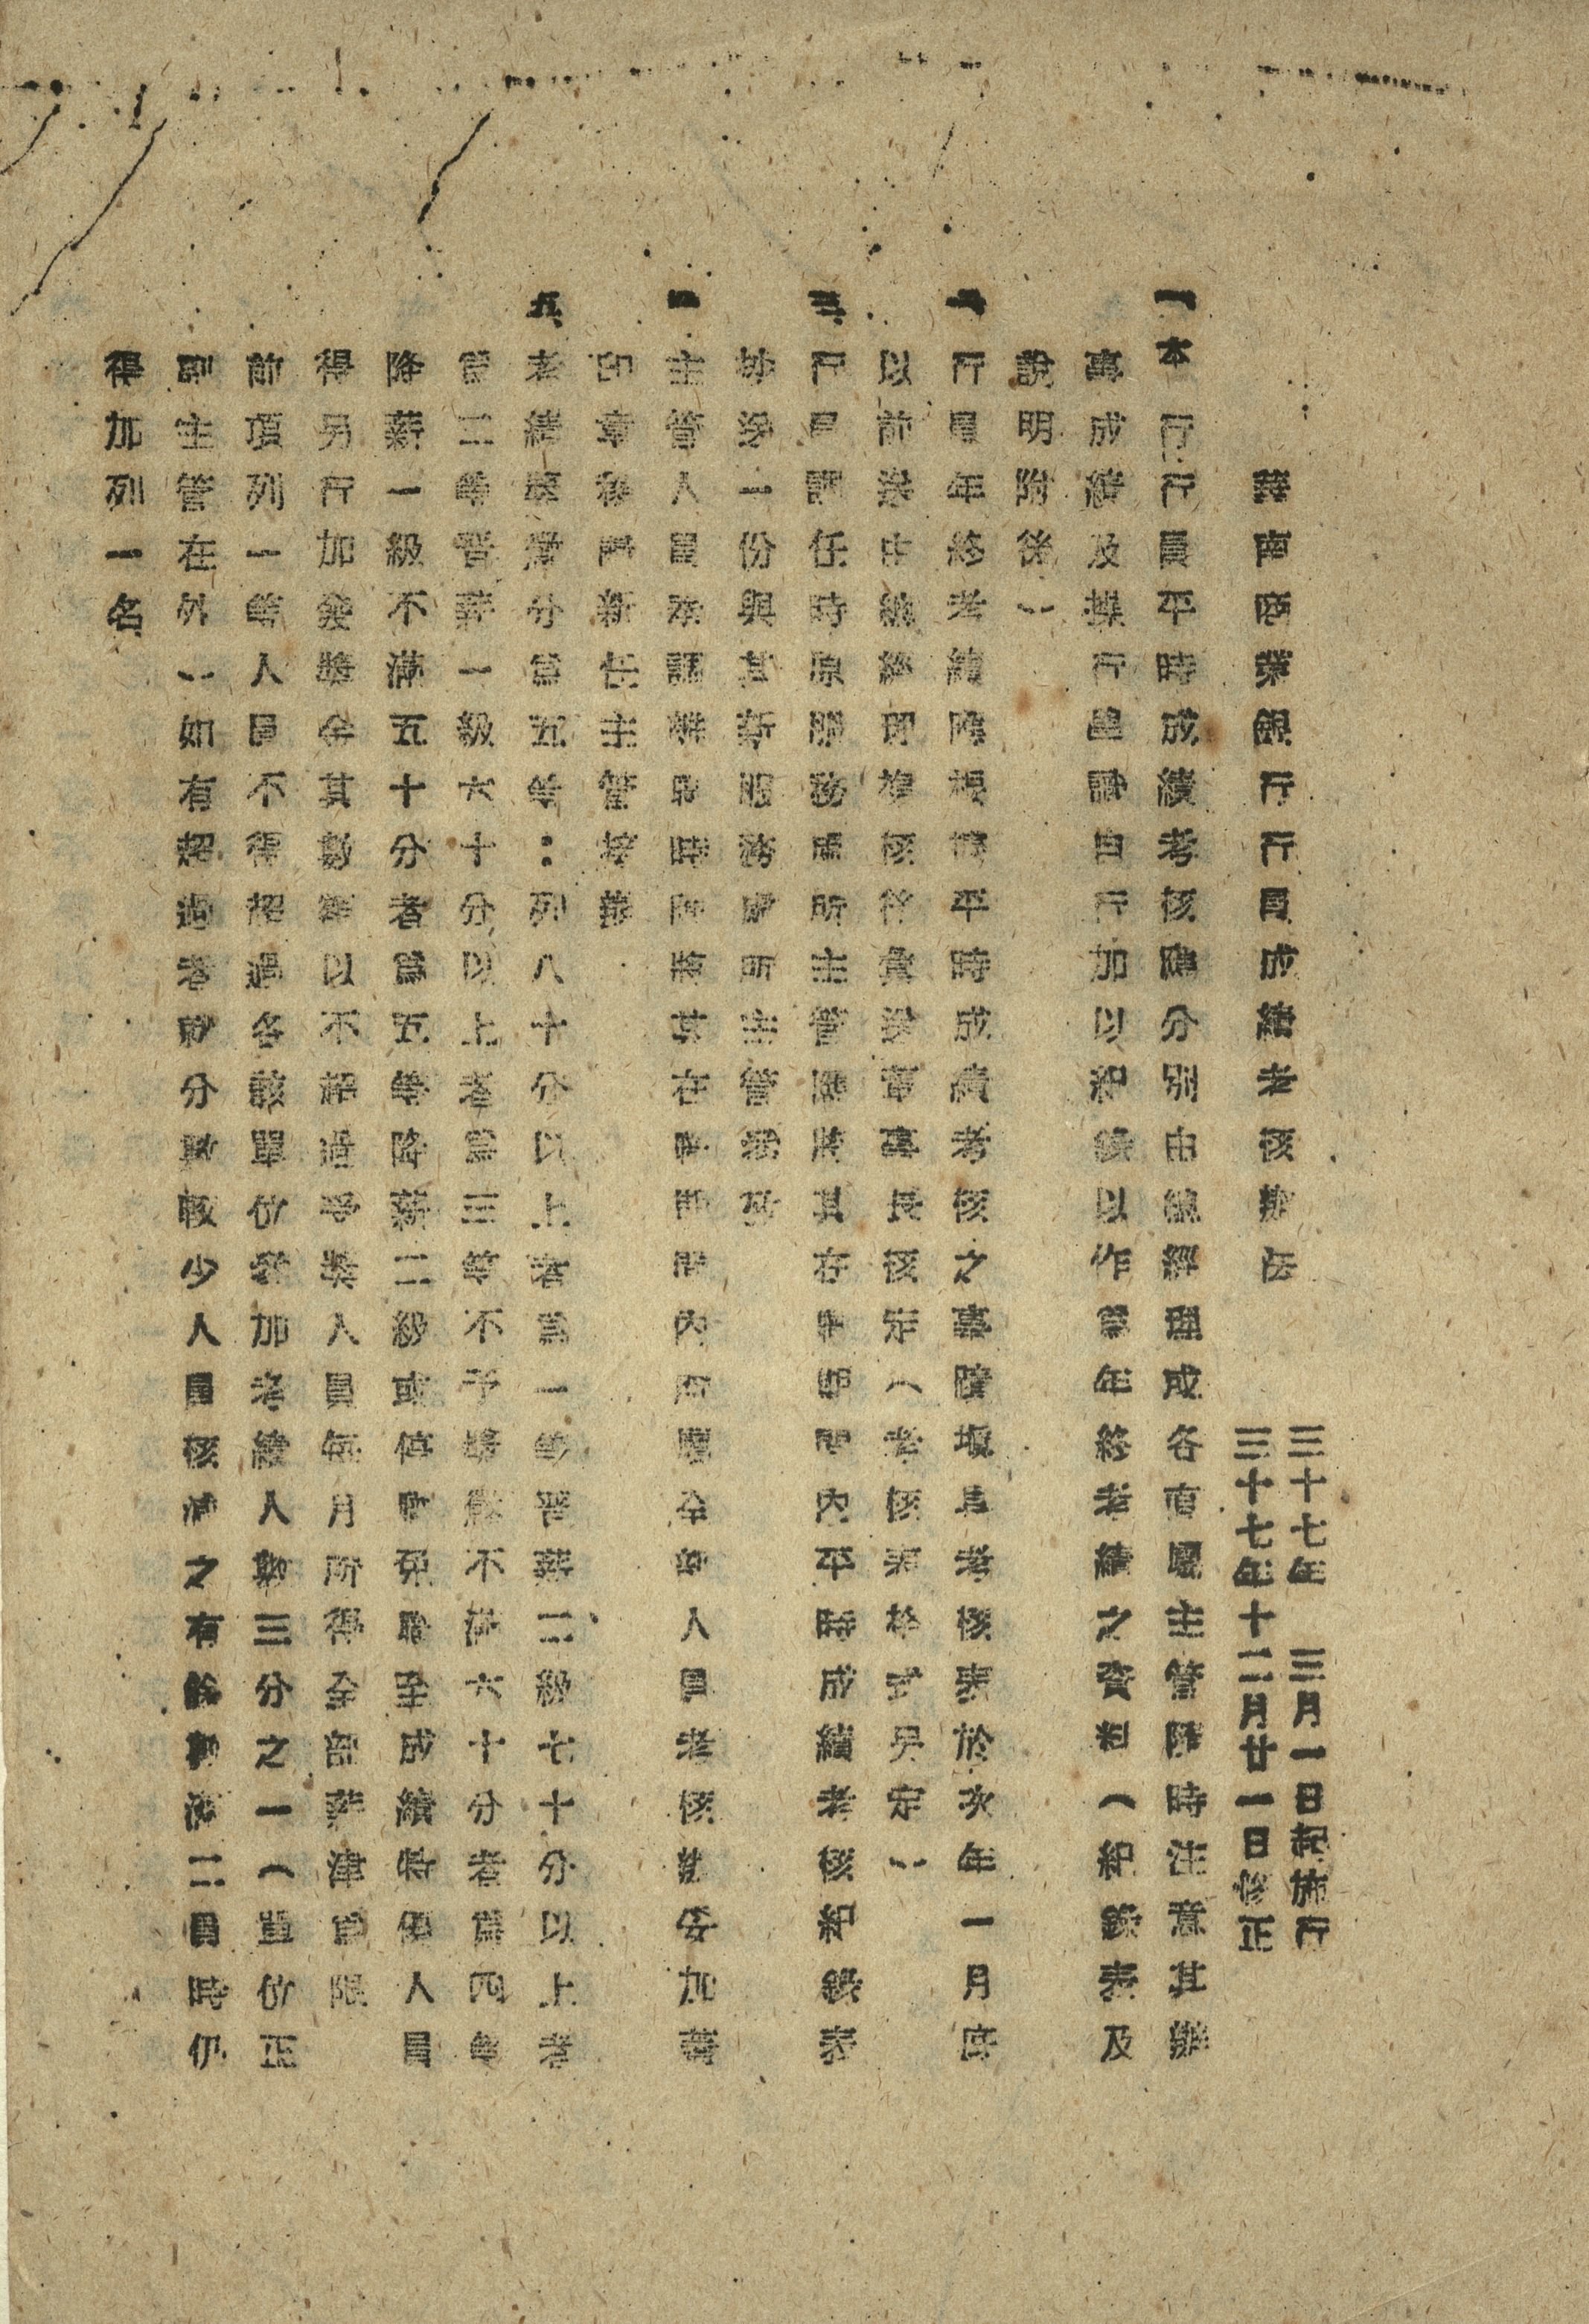 南商業銀行行員成績考核辦法
三十七年 三月一日起施行
三十七年十二月廿一日修正
一本行行員平時成績考核應分別由總經理成各直屬主管隨時注意其辦
事成績及操行品詣自行加以紀錄以作當年終考績之資料(紀錄表及
說明附後)
行員年終考績除根據平時成績考核之事蹟填具考核表於次年一月底
以前送由總經理複核後彙送董事長核定(考核表格式另定)
三行員調任時原服務處所主管應將其在職期間內平時成績考核紀錄表
抄送一份與其新服務處所主管
四主管人員於調離職時應將其在職期間內所屬全部人員考核紀錄加蓋
印章移與新任主管接辦
五考績獎懲分爲五等:列八十分以上者爲一等晉薪二級七十分以上者
爲二等晉薪一級六十分以上者爲三等不予獎懲不滿六十分者爲四等
降薪一級不滿五十分者爲五等降薪二級或停職免職至成績特優人員
得另行加發獎金其數額以不超過受獎人員每月所得全部薪津爲限
前項列一等人員不得超過各該單位參加考績人數三分之一(單位正
副主管在外)如有超過者就分數較少人員核減之有餘數滿二員時仍
得加列一名